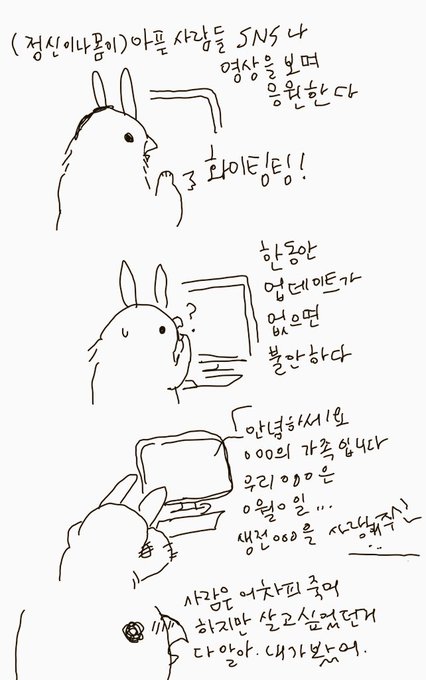 (정신이나 몸이) 아픈 사람들 SNS나
영상을 보며
응원한다
화이팅팅!
한동안
업데이트가
없으면
불안하다
?
안녕하세요
000의 가족입니다
우리 000은
0월 0일...
생전 000을 사랑해주신
사람은 어차피 죽어
하지만 살고싶었던거
다 알아. 내가 봤어.